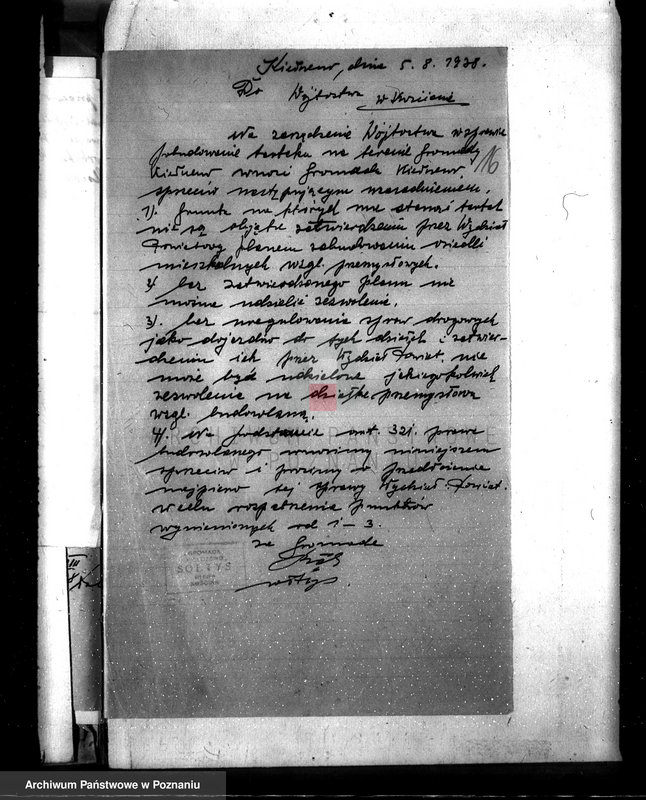 dnia 5. 8. 1938.
Do Wójtostwa
w
16
Na zarządzenie Wójtostwa w sprawie
pobudowanie tartaku na terenie Gromady
wnosi Gromada
sprzeciw następującym uzasadnieniem.
1). Grunta na których ma stanąć tartak
nie są objęte zatwierdzeniu przez Wydział
Powiatowy planem zabudowania osiedli
mieszkalnych wzgl. przemysłowych.
2) bez zatwierdzonego planu nie
można udzielić zezwolenie.
3). bez uregulowania spraw drogowych
jako dojazdów do tych działek i zatwier-
dzeniu ich przez Wydział Powiat. nie
może być udzielone jakiegokolwiek
zezwolenie na działkę przemysłową
wzgl. budowlaną.
4). Na podstawie art. 321. prawa
budowlanego wnosimy niniejszem
sprzeciw i prosimy o przedłożenie
najpierw tej sprawy Wydział. Powiat.
w celu rozpatrzenia punktów
wymienionych od 1 – 3.
za Gromadę
sołtys.
GROMADA
SOŁTYS
ARCHIWUM PAŃSTWOWE
Archiwum Państwowe w Poznaniu